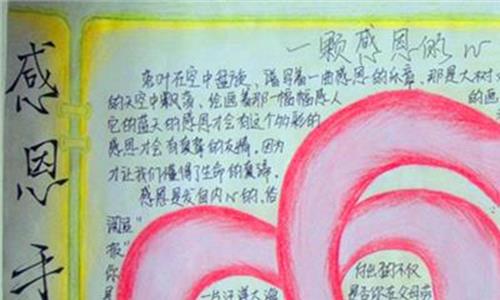 感恩手
一颗感恩的心
落叶在空中盘旋，谱写着一曲感恩的乐章，那是大树
的天空中飘荡，绘画着那一幅幅感人 的画
它的蓝天的感恩才会有这个多彩的
感恩才会有真挚的友情，因为
才让我们懂得了生命的真谛。
感恩是发自内心的，俗
涌泉"
报"
你
一片汪洋大海
付出的不仅
是